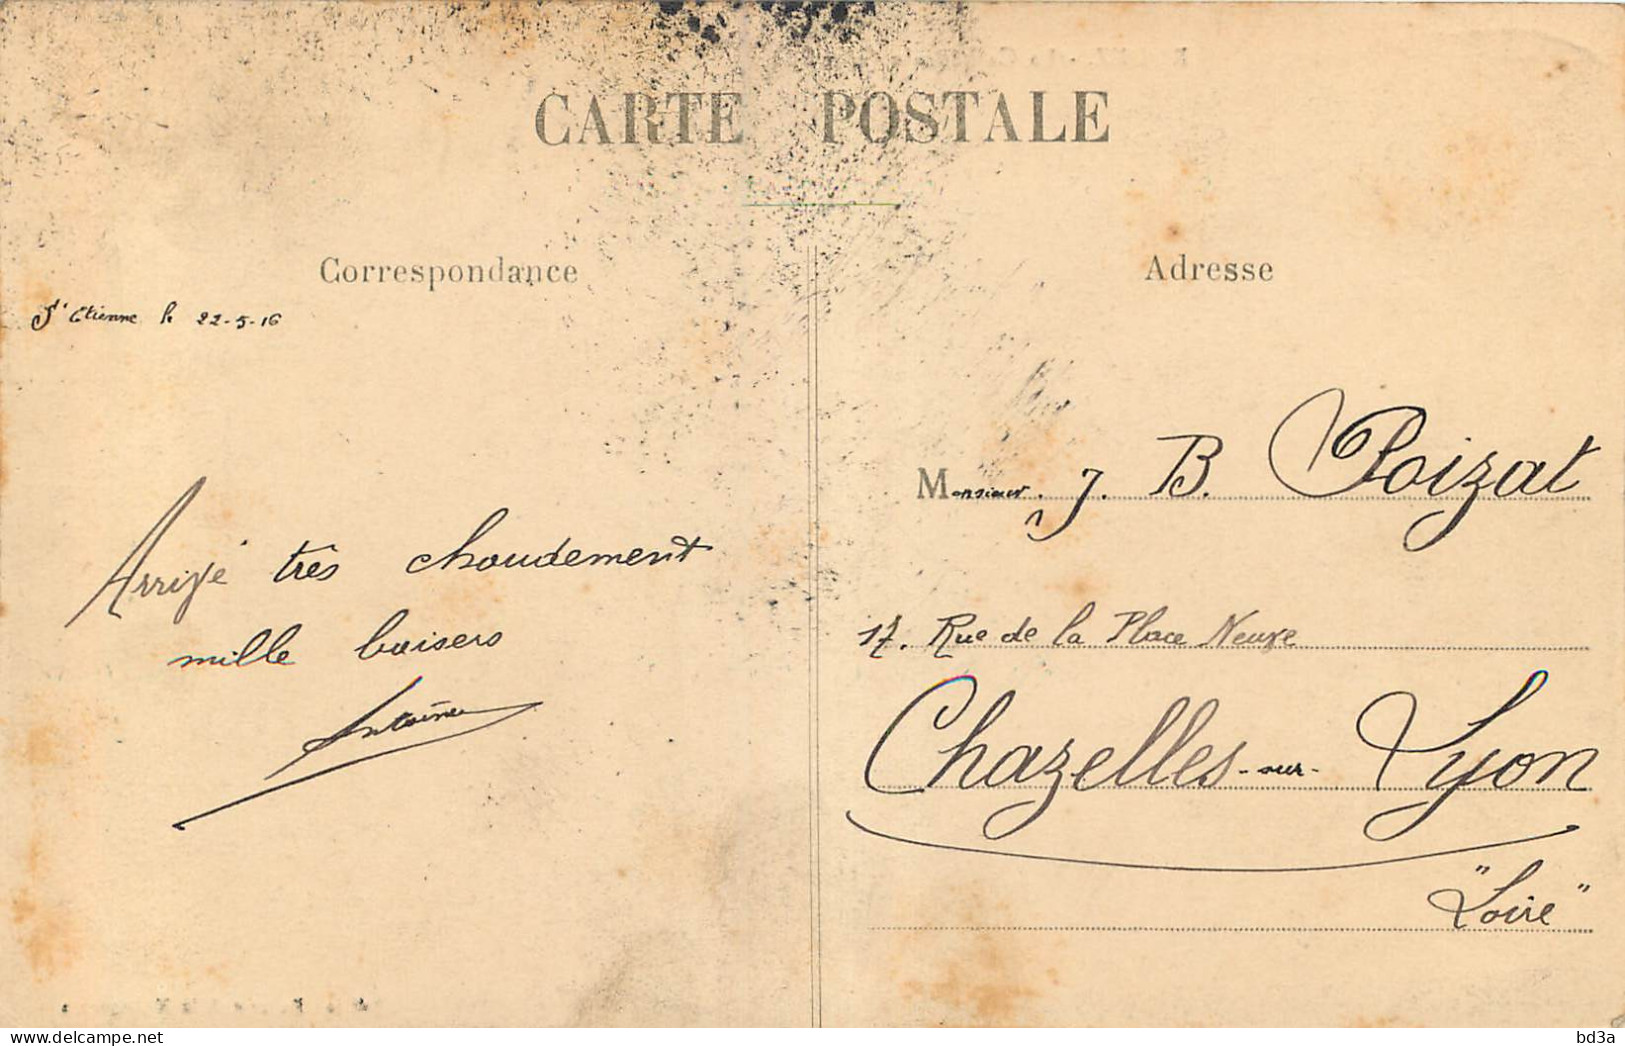 CARTE POSTALE
Correspondance
St Etienne le 22-5-16
Arrivé très chaudement
mille baisers
Antoine
Adresse
Monsieur. J. B. Poizat
17. Rue de la Place Neuve
Chazelles-sur-Lyon
"Loire"
www.delcampe.net
bd3a